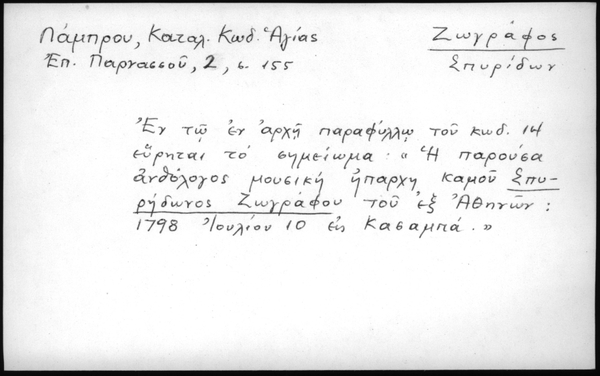 Λάμπρου, Καταλ. Κωδ. Ἁγίας
Ἐπ. Παρνασσοῦ, 2, σ. 155
Ζωγράφος
Σπυρίδων
Ἐν τῷ ἐν ἀρχῇ παραφύλλῳ τοῦ κωδ. 14
εὕρηται τὸ σημείωμα : « Ἡ παροῦσα
ἀνθόλογος μουσικὴ ἠπαρχη καμοῦ Σπυ-
ρήδωνος Ζωγράφου τοῦ ἐξ Ἀθηνῶν :
1798 Ἰουλίου 10 εἰς Κασαμπά. »